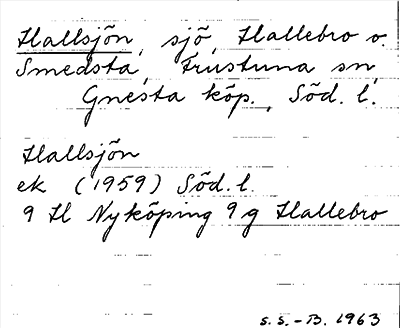 Hallsjön, sjö, Hallebro o.
Smedsta, Frustuna sn,
Gnesta köp., Söd. l.
Hallsjön
ek (1959) Söd. l.
9 H Nyköping 9 g Hallebro
S.S.-B. 1963